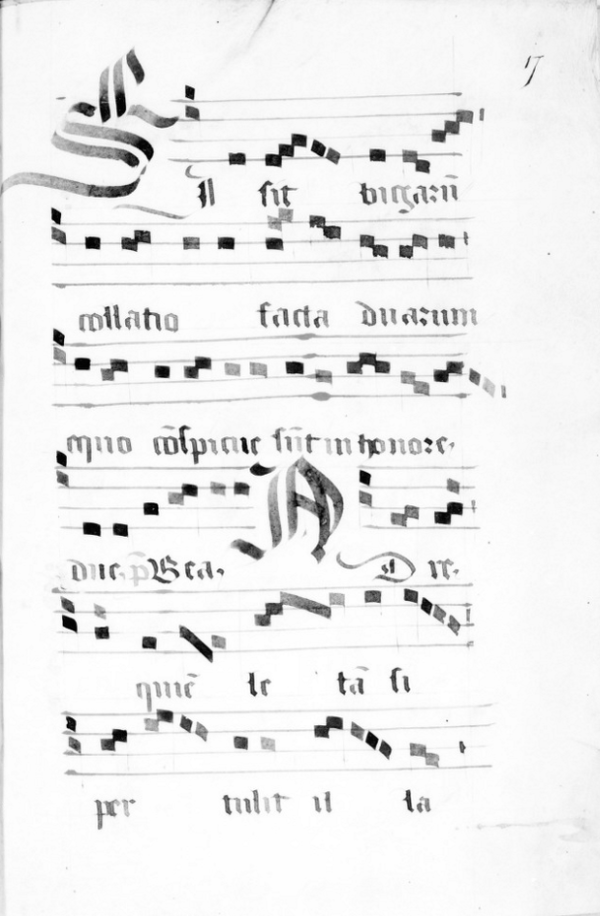 7
Si sit virgarū
collatio facta duarum
equo cōspicue sūt in honore.
due. p̄ Bea. Ad re.
quiē le tā si
per tulit il la